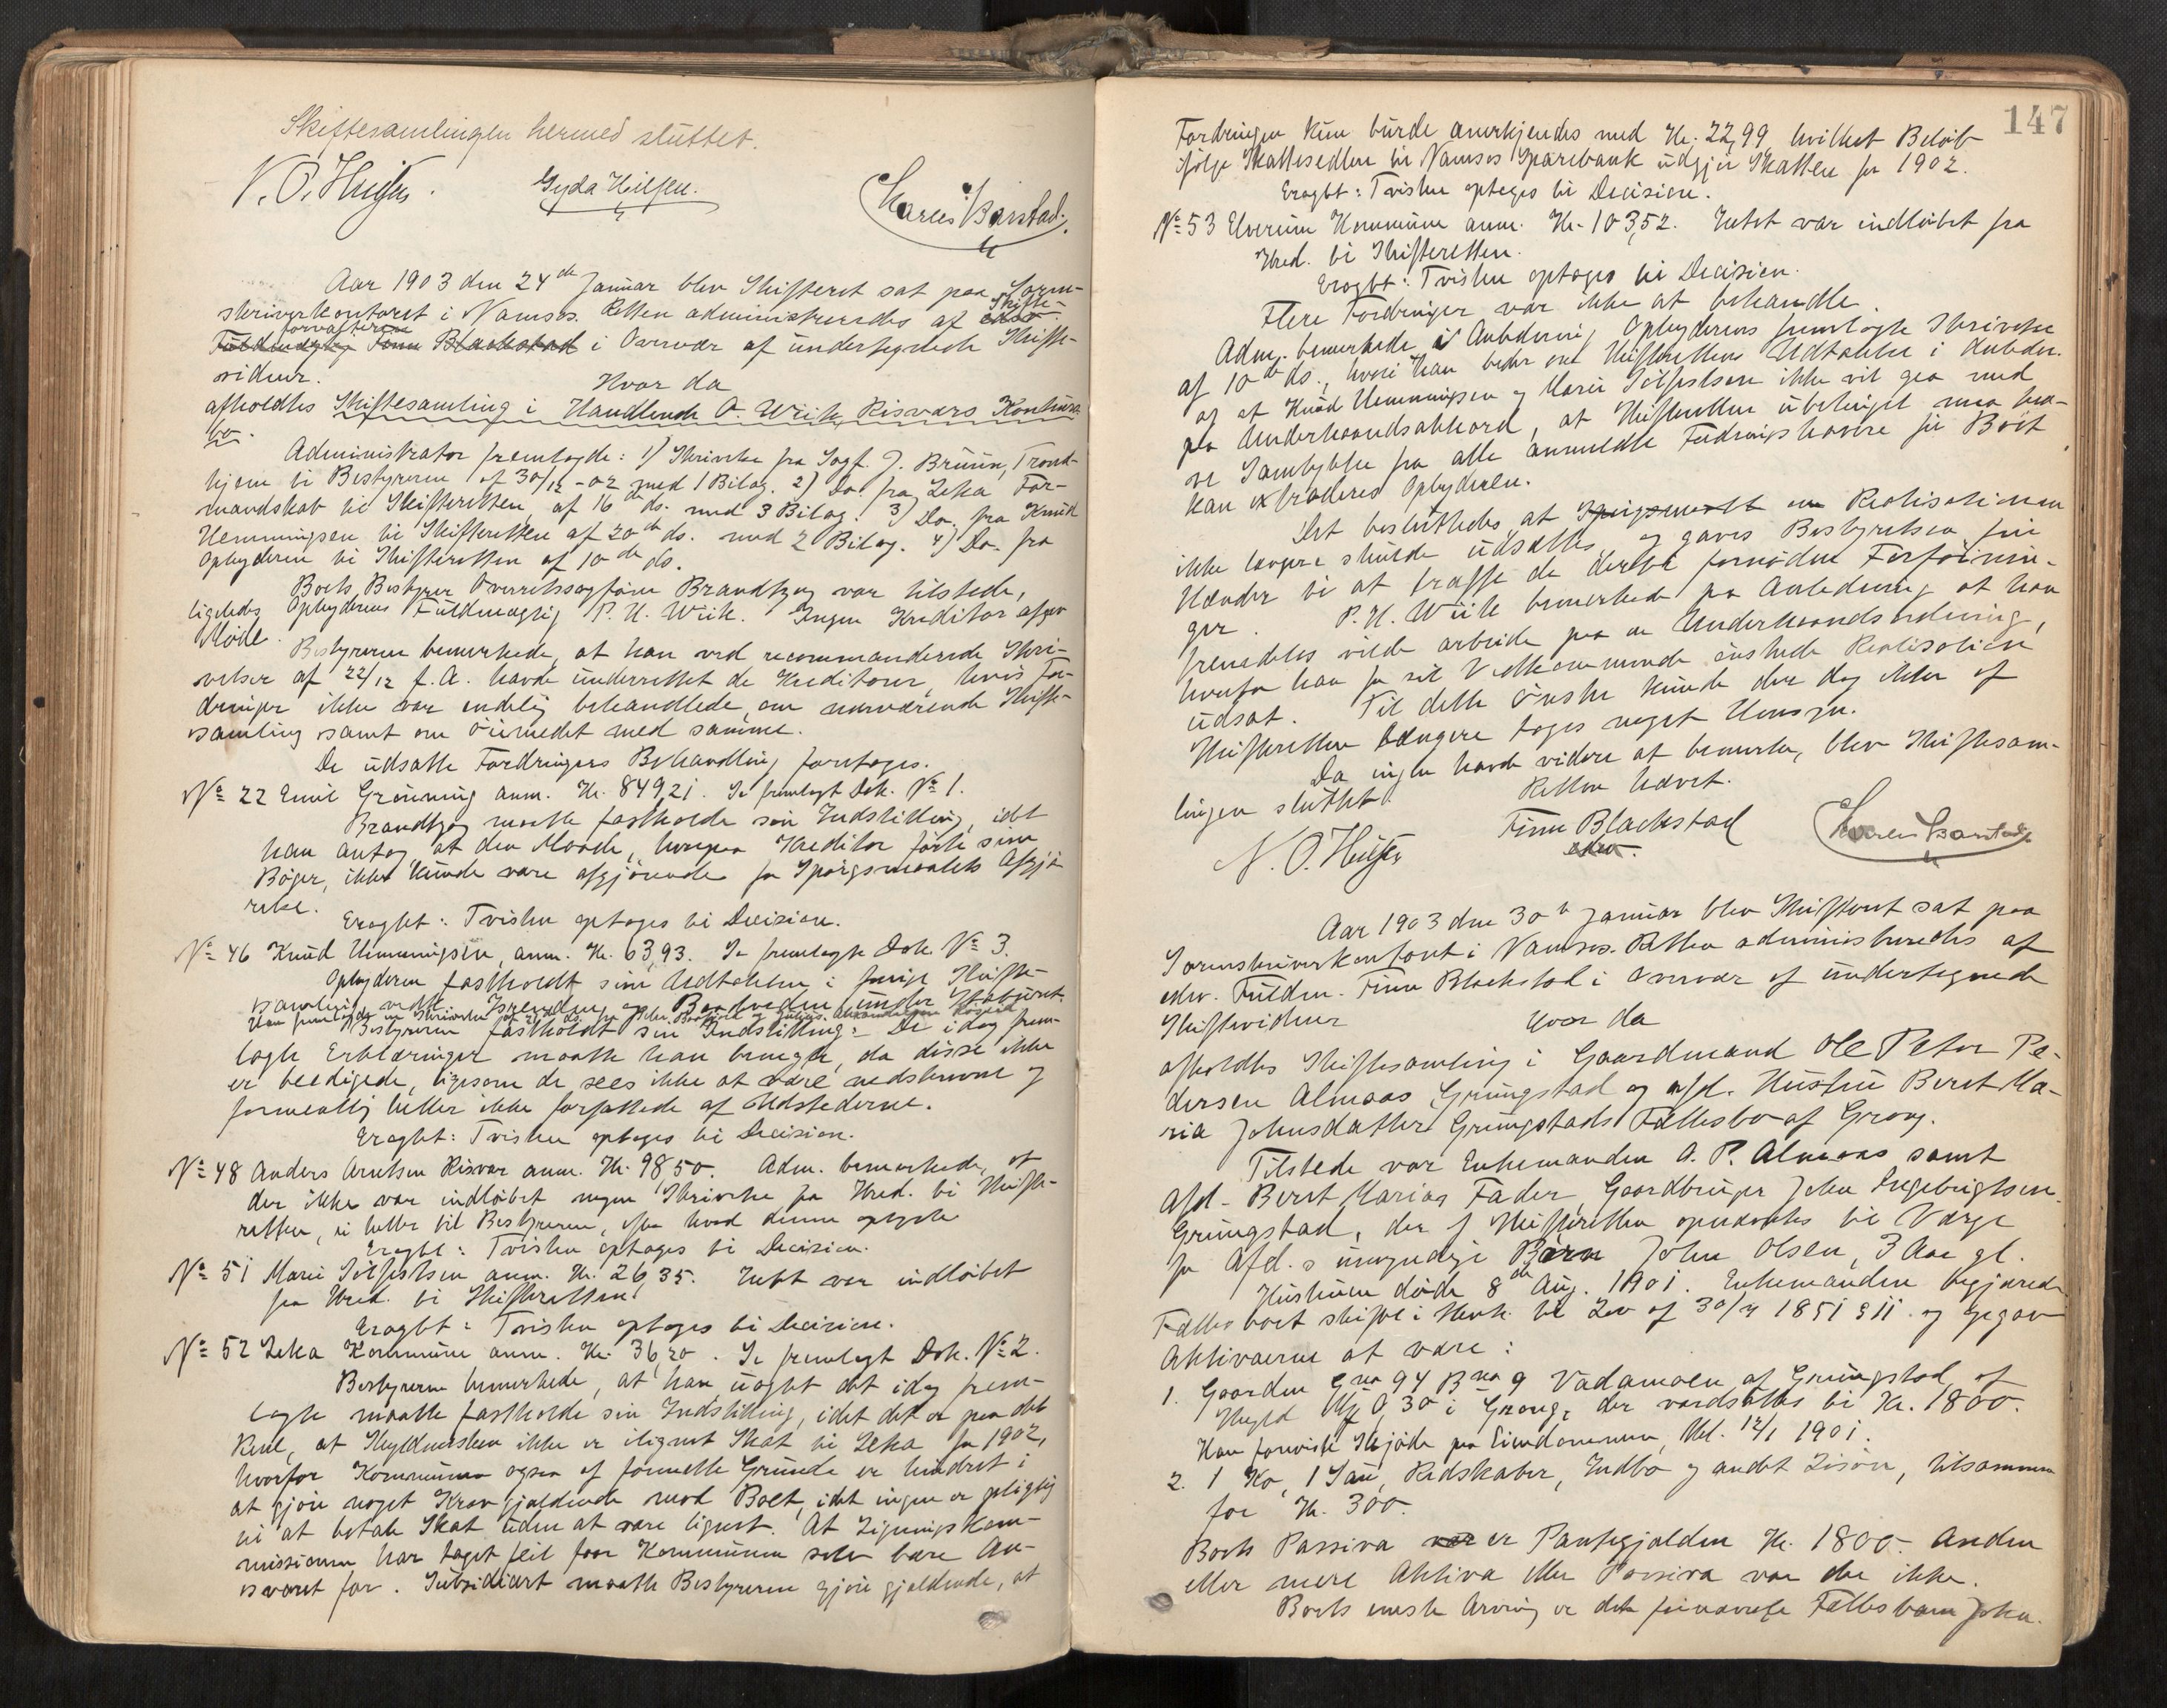 Skiftesamlingen hermed sluttet.
N. O. Gyda Charles Barstad
Aar 1903 den 24de Januar blev Skifteret sat paa Soren-
skriverkontoret i Namsos. Retten administreredes af Skifte-
forvalteren i Overvær af undertegnede Skifte-
vidner.
Hvor da
afholdtes Skiftesamling i Handlende O. Wiik, Risværs Konkurs-
bo.
Administrator fremlagde: 1) Skrivelse fra Sagf. J. Bruun, Trond-
hjem til Bestyreren af 30/12 - 02 med 1 Bilag. 2) Do. fra Leka For-
mandskab til Skifteretten af 16de ds. med 3 Bilag. 3) Do. fra Knud
Hemmingsen til Skifteretten af 20de ds. med 2 Bilag. 4) Do. fra
Opbyderen til Skifteretten af 10de ds.
Boets Bestyrer Overretssagfører Brandtzæg var tilstede,
ligeledes Opbyderens Fuldmægtig P. H. Wiik. Ingen Kreditor afgav
Møde.
Bestyreren bemerkede, at han ved recommanderede Skri-
velser af 22/12 f. A. havde underrettet de Kreditorer, hvis For-
dringer ikke var endelig behandlede, om nærværende Skifte-
samling samt om Øiemedet med samme.
De udsatte Fordringers Behandling foretoges.
No 22 Emil Grønning anm. Kr. 849,21. Se fremlagt Dok. No 1.
Brandtzæg maatte fastholde sin Indstilling, idet
han antog, at den Maade, hvorpaa Kreditor førte sine
Bøger, ikke kunde være afgjørende for Spørgsmaalets Afgjø-
relse.
Eragtet: Tvisten optages til Decision.
No 46 Knud Hemmingsen, anm. Kr. 63,93. Se fremlagte Dok. No 3.
Opbyderen fastholdt sine Udtalelser i forrige Skifte-
samling vedk. og under Staburet.
Han fremlagde en Skrivelse
Bestyreren fastholdt sin Indstilling: De idag frem-
lagte Erklæringer maatte han benegte, da disse ikke
er beedigede, ligesom de sees ikke at være nedskrevne og
formentlig heller ikke forfattede af Udstederne.
Eragtet: Tvisten optages til Decision.
No 48 Anders Arntsen Risvær anm. Kr. 98,50. Adm. bemerkede, at
der ikke var indløbet nogen Skrivelse fra Kred. til Skifte-
retten, ei heller til Bestyreren, efter hvad denne oplyste
Eragtet: Tvisten optages til Decision.
No 51 Marie anm. Kr. 26,35. Intet var indløbet
fra Kred. til Skifteretten.
Eragtet: Tvisten optages til Decision.
No 52 Leka Kommune anm. Kr. 36,20. Se fremlagt Dok. No 2.
Bestyreren bemerkede, at han uagtet det idag frem-
lagte maatte fastholde sin Indstilling, idet det er paa det
Rene, at Skyldneren ikke er ilignet Skat til Leka for 1902,
hvorfor Kommunen ogsaa af formelle Grunde er hindret i
at gjøre noget Krav gjældende mod Boet, idet ingen er pligtig
til at betale Skat uden at være lignet. At Ligningskom-
missionen har taget feil faar Kommunen selv bære An-
svaret for. Subsidiært maatte Bestyreren gjøre gjældende, at
147
Fordringen kun burde anerkjendes med Kr. 22,99 hvilket Beløb
ifølge Skattesedlen til Namsos Sparebank udgjør Skatten for 1902.
Eragtet: Tvisten optages til Decision.
No 53 Elverum Kommune anm. Kr. 103,52. Intet var indløbet fra
Kred. til Skifteretten.
Eragtet: Tvisten optages til Decision.
Flere Fordringer var ikke at behandle
Adm. bemerkede i Anledning Opbyderens fremlagte Skrivelse
af 10de ds., hvori han beder om Skifterettens Udtalelse i Anledn.
af at Knud Hemmingsen og Marie ikke vil gaa med
paa Underhaandsakkord, at Skifteretten ubetinget maa ha-
ve Samtykke fra alle anmeldte Fordringshavere før Boet
kan extraderes Opbyderen.
Det besluttedes, at Realisationen
ikke længere skulde udsættes og gaves Bestyrelsen frie
Hænder til at træffe de dertil fornødne Forføinin-
ger. P. H. Wiik bemerkede paa Anledning at han
fremdeles vilde arbeide paa en Underhaandsordning,
hvorfor han for sit Vedkommende ønskede Realisation
udsat. Til dette Ønske kunde der dog ikke af
Skifteretten længere tages noget Hensyn.
Da ingen havde videre at bemerke, blev Skiftesam-
lingen sluttet. Retten hævet.
N. O. Finn Blackstad Charles Barstad
edsv.
Aar 1903 den 30te Januar blev Skifteret sat paa
Sorenskriverkontoret i Namsos. Retten administreredes af
edsv. Fuldm. Finn Blackstad i Overvær af undertegnede
Skiftevidner Hvor da
afholdtes Skiftesamling i Gaardmand Ole Peter Pe-
dersen Almaas Grungstad og afd. Hustru Beret Ma-
ria Johnsdatter Grungstads Fællesbo af Grong.
Tilstede var Enkemanden O. P. Almaas samt
Afd. Beret Marias Fader, Gaardbruger John Ingebrigtsen
Grungstad, der af Skifteretten opnævntes til Værge
for Afd.s umyndige Børn John Olsen, 3 Aar gl.
Hustruen døde 8de Aug. 1901. Enkemanden begjærede
Fællesboet skiftet i Henh. til Lov af 30/7 1851 § 11 og opgav
Aktivaerne at være:
1. Gaarden Gno 94 Bno 9 Vadamoen af Grungstad, af
Skyld Mk 0,30 i Grong, der værdsattes til Kr. 1800.
Han foreviste Skjøde paa Eiendommen, thl. 12/1 1901.
2. 1 Ko, 1 Sau, Redskaber, Indbo og andet Løsøre, tilsammen
for Kr. 300.
Boets Passiva er Pantegjælden Kr. 1800. Anden
eller mere Aktiva eller Passiva var der ikke.
Boets eneste Arving er det førnævnte Fællesbarn John.